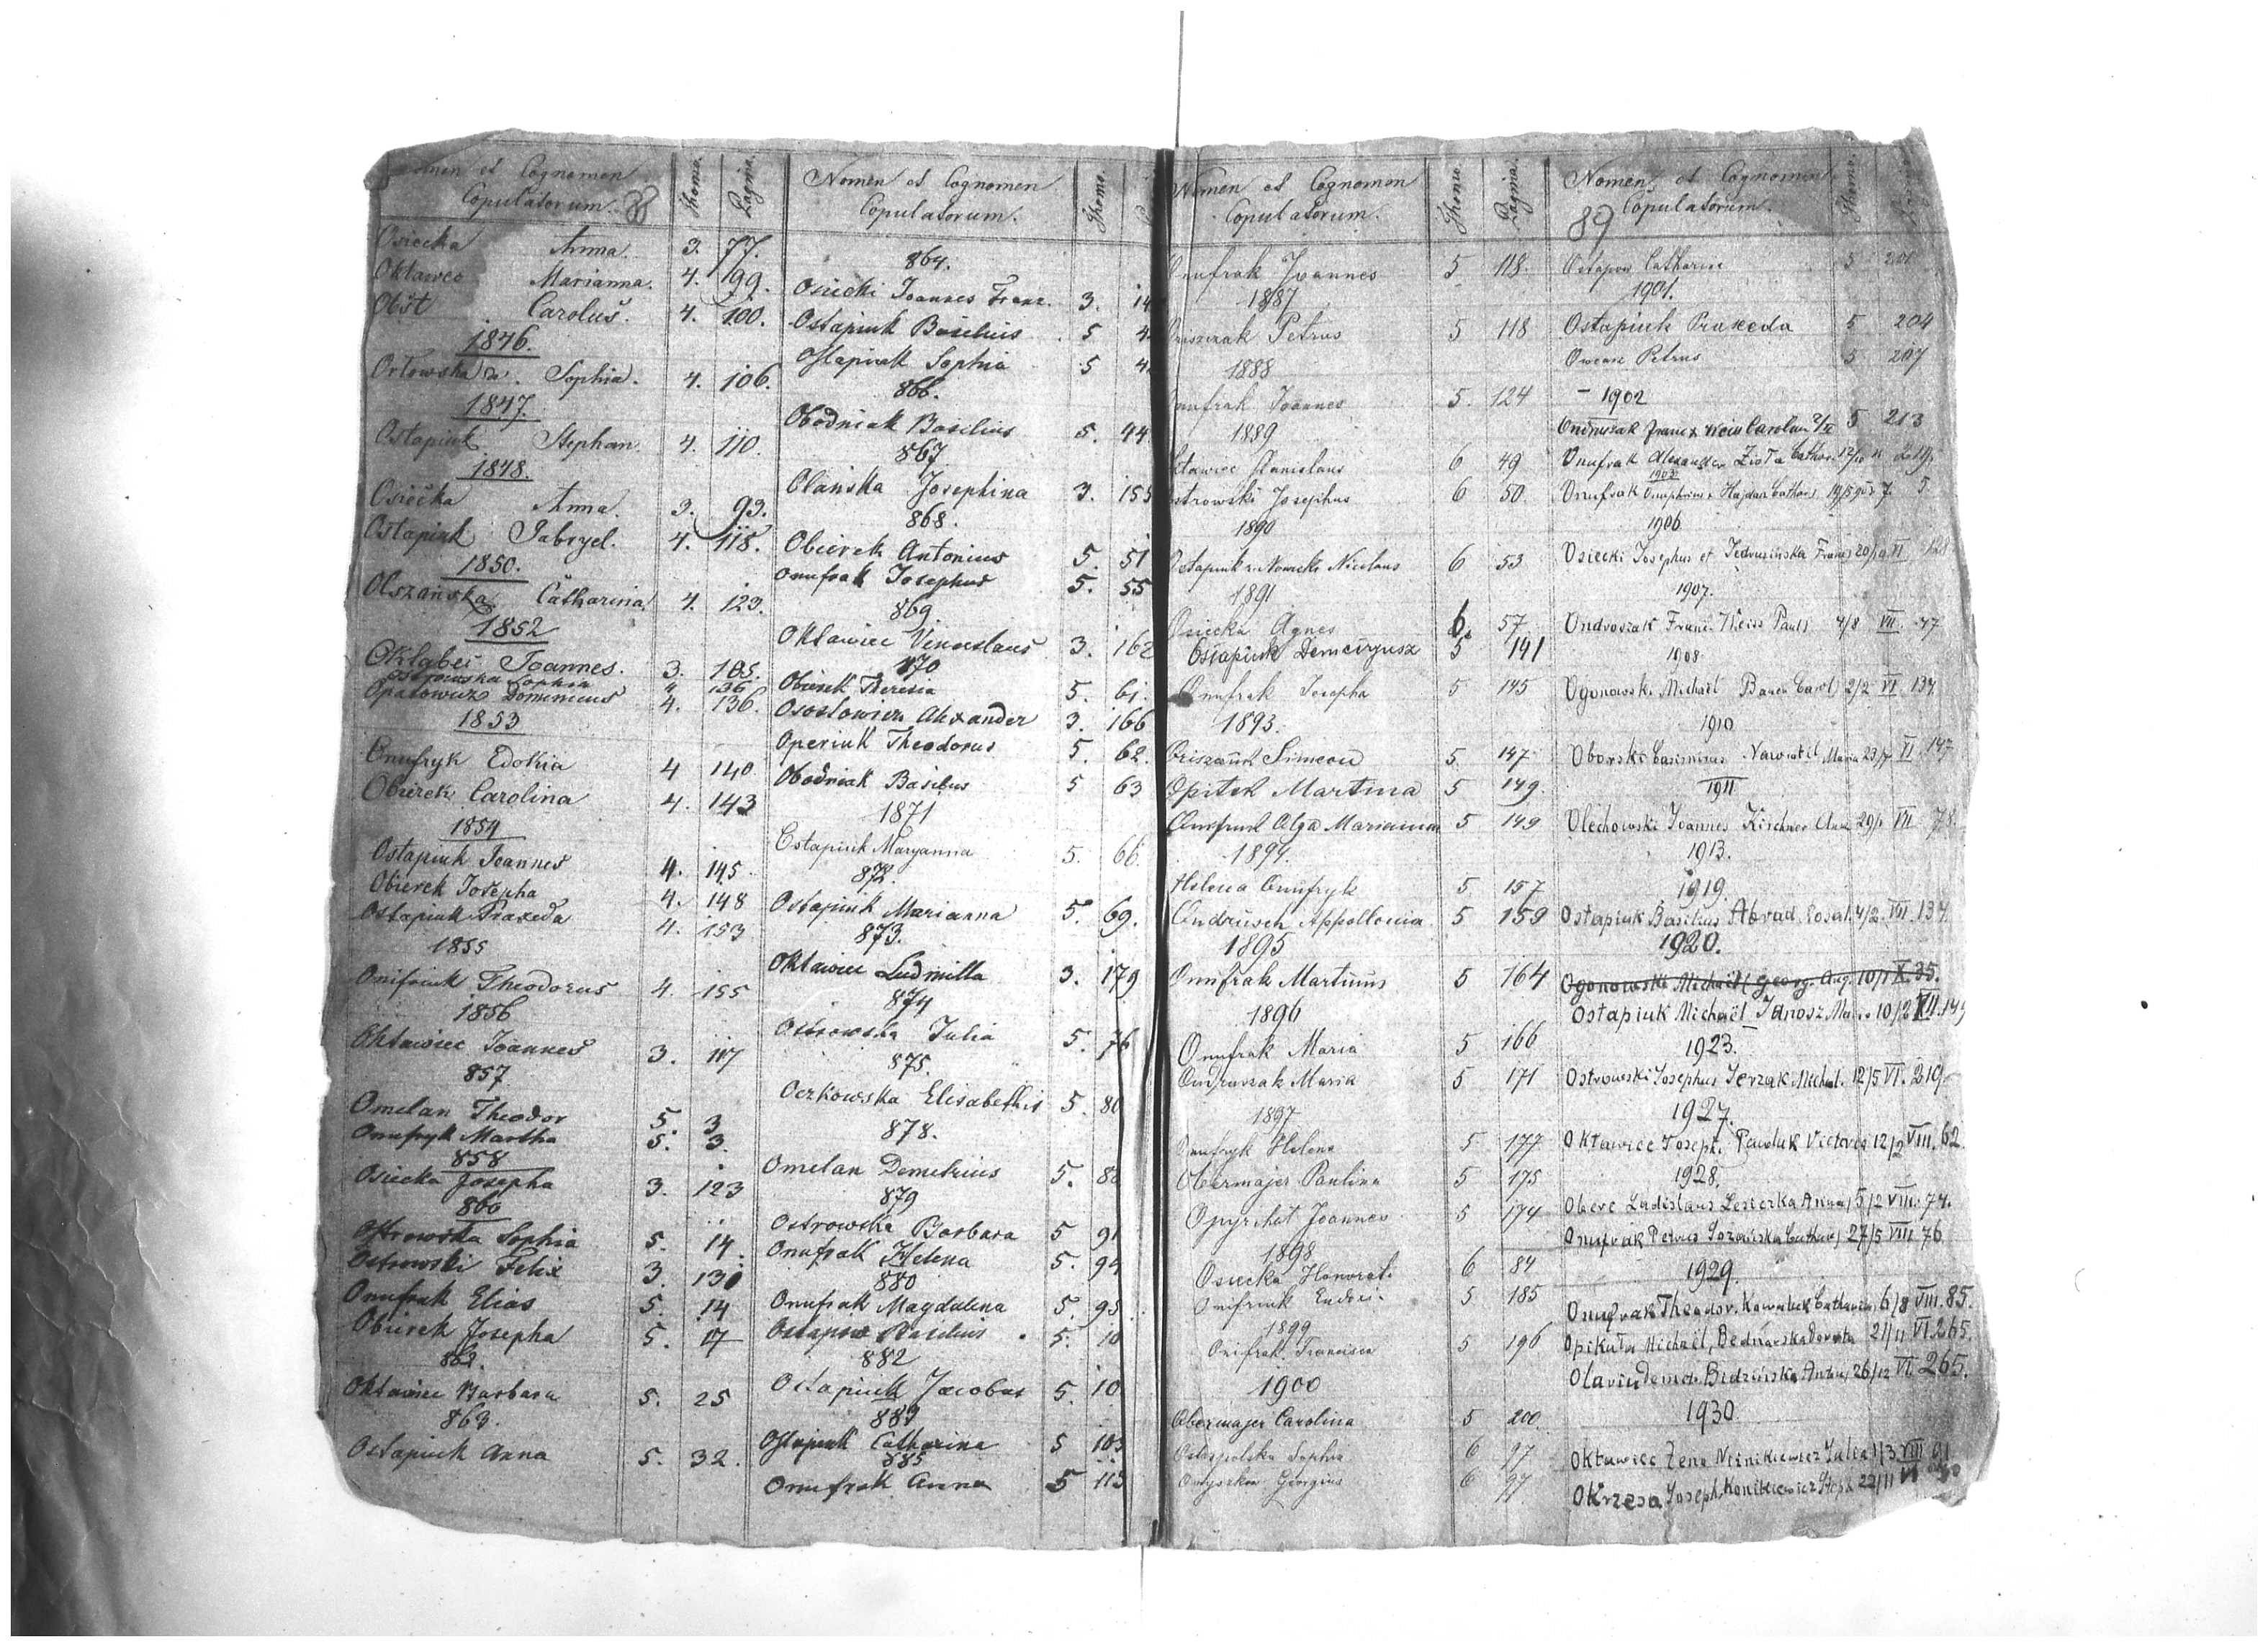 Nomen et Cognomen Copulatorum. 88 Thomo. Pagina.
Osiecka Anna. 3. 77.
Oktawec Marianna. 4. 99.
Obst Carolus. 4. 100.
1846.
Orłowska Sophia. 4. 106.
1847.
Ostapiuk Stephan. 4. 110.
1848.
Osiecka Anna. 3. 93.
Ostapiuk Gabryel. 4. 118.
1850.
Olszańska Catharina. 4. 123.
1852
Oklabei Joannes. 3. 105.
Ostrowska Sophia 4 136
Opatowicz Dominicus 4. 136.
1853
Onufryk Edokia 4 140
Obierek Carolina 4. 143
1854
Ostapiuk Joannes 4. 145.
Obierek Josepha 4. 148
Ostapiuk Praxeda 4. 153
1855
Onifriuk Theodorus 4. 155
1856
Oktawiec Joannes 3. 117
857
Omelan Theodor 5. 3
Onufryk Martha 5. 3.
858
Osiecka Josepha 3. 123
860
Ostrowska Sophia 5. 14
Ostrowski Felix 3. 131
Onufrak Elias 5. 14
Obierek Josepha 5. 17
862.
Oktawiec Barbara 5. 25
863.
Ostapiuk Anna 5. 32.
Nomen et Cognomen Copulatorum. Thomo.
864.
Osiecki Joannes Franz. 3. 14
Ostapiuk Basilius 5 4
Ostapiuk Sophia 5 4
866.
Obodniak Basilius 5. 44
867
Olanska Josephina 3. 155
868.
Obierek Antonius 5. 51
Onufrak Josephus 5. 55
869
Oktawiec Venceslaus 3. 162
870
Obierek Theresia 5. 61.
Osostowicz Alexander 3. 166
Operiuk Theodorus 5. 62.
Obodniak Basilius 5 63
1871
Ostapiuk Maryanna 5. 66
872.
Ostapiuk Marianna 5. 69.
873.
Oktawiec Ludmilla 3. 179
874
Ostrowska Julia 5. 76
875.
Oczkowska Elisabetha 5. 80
878.
Omelan Demetrius 5. 88
879
Ostrowska Barbara 5 91
Onufrak Helena 5. 94
880
Onufrak Magdalena 5. 95
Ostapiw Basilius 5. 10
882
Ostapiuk Jacobus 5. 10
883
Ostapiuk Catharina 5 103
885
Onufrak Anna 5 113
Nomen et Cognomen Copulatorum. Thomo. Pagina.
Onufrak Joannes 5 118.
1887
Petrus 5 118
1888
Onufrak Joannes 5. 124
1889
Oktawiec Stanislaus 6 49
Ostrowski Josephus 6 50.
1890
Ostapiuk Nicolaus 6 53
1891
Osiecka Agnes 6. 57
Ostapiuk 5 141
Onufrak Josepha 5 145
1893.
Simeon 5. 147
Opitek Martina 5 149.
Olga Marianna 5 149
1894.
Helena Onufryk 5 157
Andrusch Appollonia 5 159
1895
Onufrak Martinus 5 164
1896
Onufrak Maria 5 166
Ondruszak Maria 5 171
1897
Onufryk Helena 5 177
Obermajer Paulina 5 175
Opyrchał Joannes 5 174
1898
Osiecka Honorat. 6 84
Onifriuk 5 185
1899
Onifrak Francisca 5 196
1900
Obermajer Carolina 5 200
Sophia 6 97
Georgius 6 97
Nomen et Cognomen Copulatorum. 89 Thomo.
Ostapow Catharina 5 200
1901.
Ostapiuk Praxeda 5 204
Owcarz Petrus 5 207
- 1902
Ondruszak Franc x Weiss Carolina 5 213
Onufrak Alexander Zioła Cathar. 12/10 219.
1903
Onufrak Onuphrius x Hajdan Cathar. 7. 5
1906
Osiecki Josephus et Jedrusińska Franc 20/10 VI 128
1907.
Ondroszak Franc. Weiss Paul. 4/8 VII. 47
1908
Ogonowski Michaël Bauer Carol. 2/2 VI 134.
1910
Oborski Casimirus Nawratil Maria 23/7 VI 147
1911
Olechowski Joannes Kirchner Anna 29/1 VII 78.
1913.
1919.
Ostapiuk Basilius Abrad Rosal. 4/2. VII. 134.
1920.
Ogonowski Michaël Georg. Aug. 10/1 X. 35.
Ostapiuk Michaël Janosz Maria 10/2 VII. 149
1923.
Ostrowski Josephus Jerzak Michal. 12/5 VI. 219.
1927.
Oktawiec Joseph. Pawluk Victoria 12/2 VIII. 62.
1928.
Oberc Ladislaus Lesiczka Anna 5/2 VIII. 74.
Onufrak Petrus Cathar. 27/5 VIII 76
1929.
Onufrak Theodor. Kowaluk Catharina 6/8 VIII. 85.
Opikuła Michaël, Bednarska Dorota 21/11 VI. 265.
26/12 VI. 265.
1930.
Oktawiec Zeno Niznikiewicz Julia 1/3 VIII 91
Okrzesa Joseph. Konikiewicz Steph. 22/11 VI